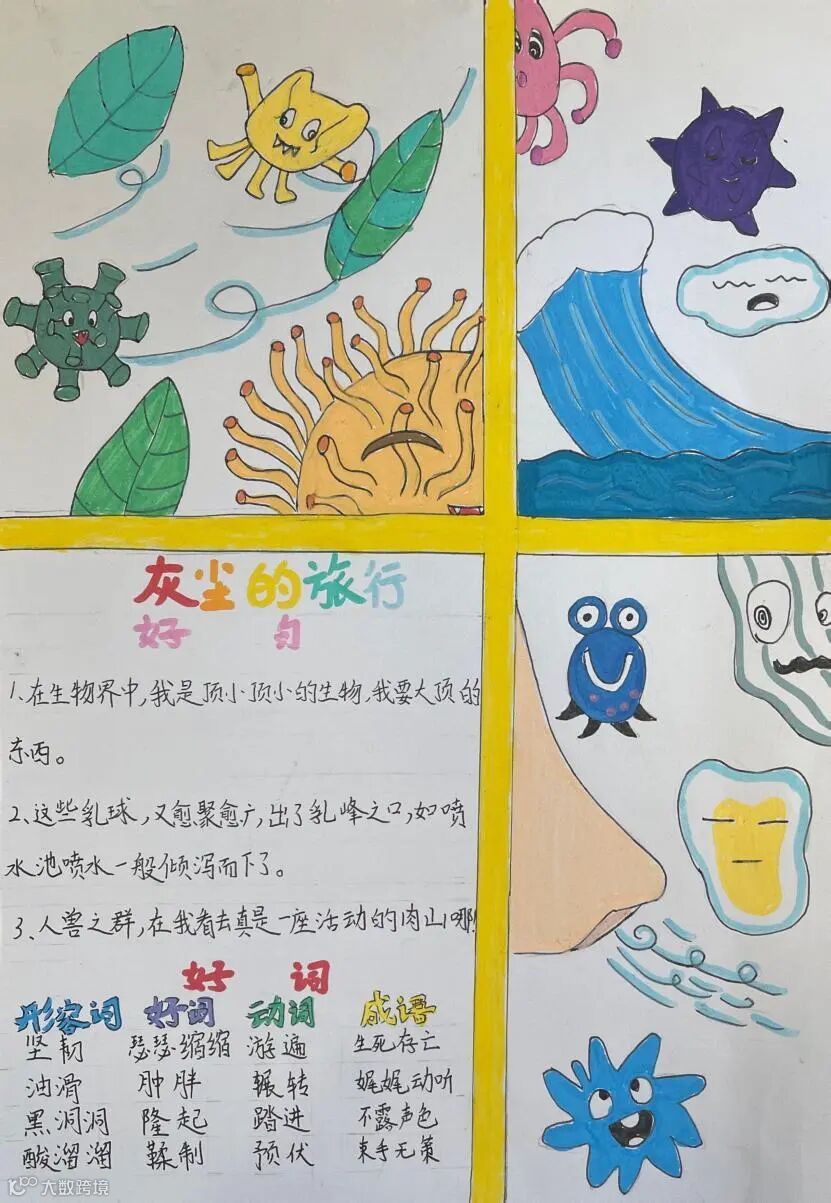 灰尘的旅行
好 句
1、在生物界中,我是顶小顶小的生物,我要大顶的
东西。
2、这些乳球,又愈聚愈广,出了乳峰之口,如喷
水池喷水一般倾泻而下了。
3、人兽之群,在我看去真是一座活动的肉山哪!
好 词
形容词 好词 动词 成语
坚韧 瑟瑟缩缩 游遍 生死存亡
油滑 肿胖 辗转 娓娓动听
黑洞洞 隆起 踏进 不露声色
酸溜溜 鞣制 预伏 束手无策
大数跨境